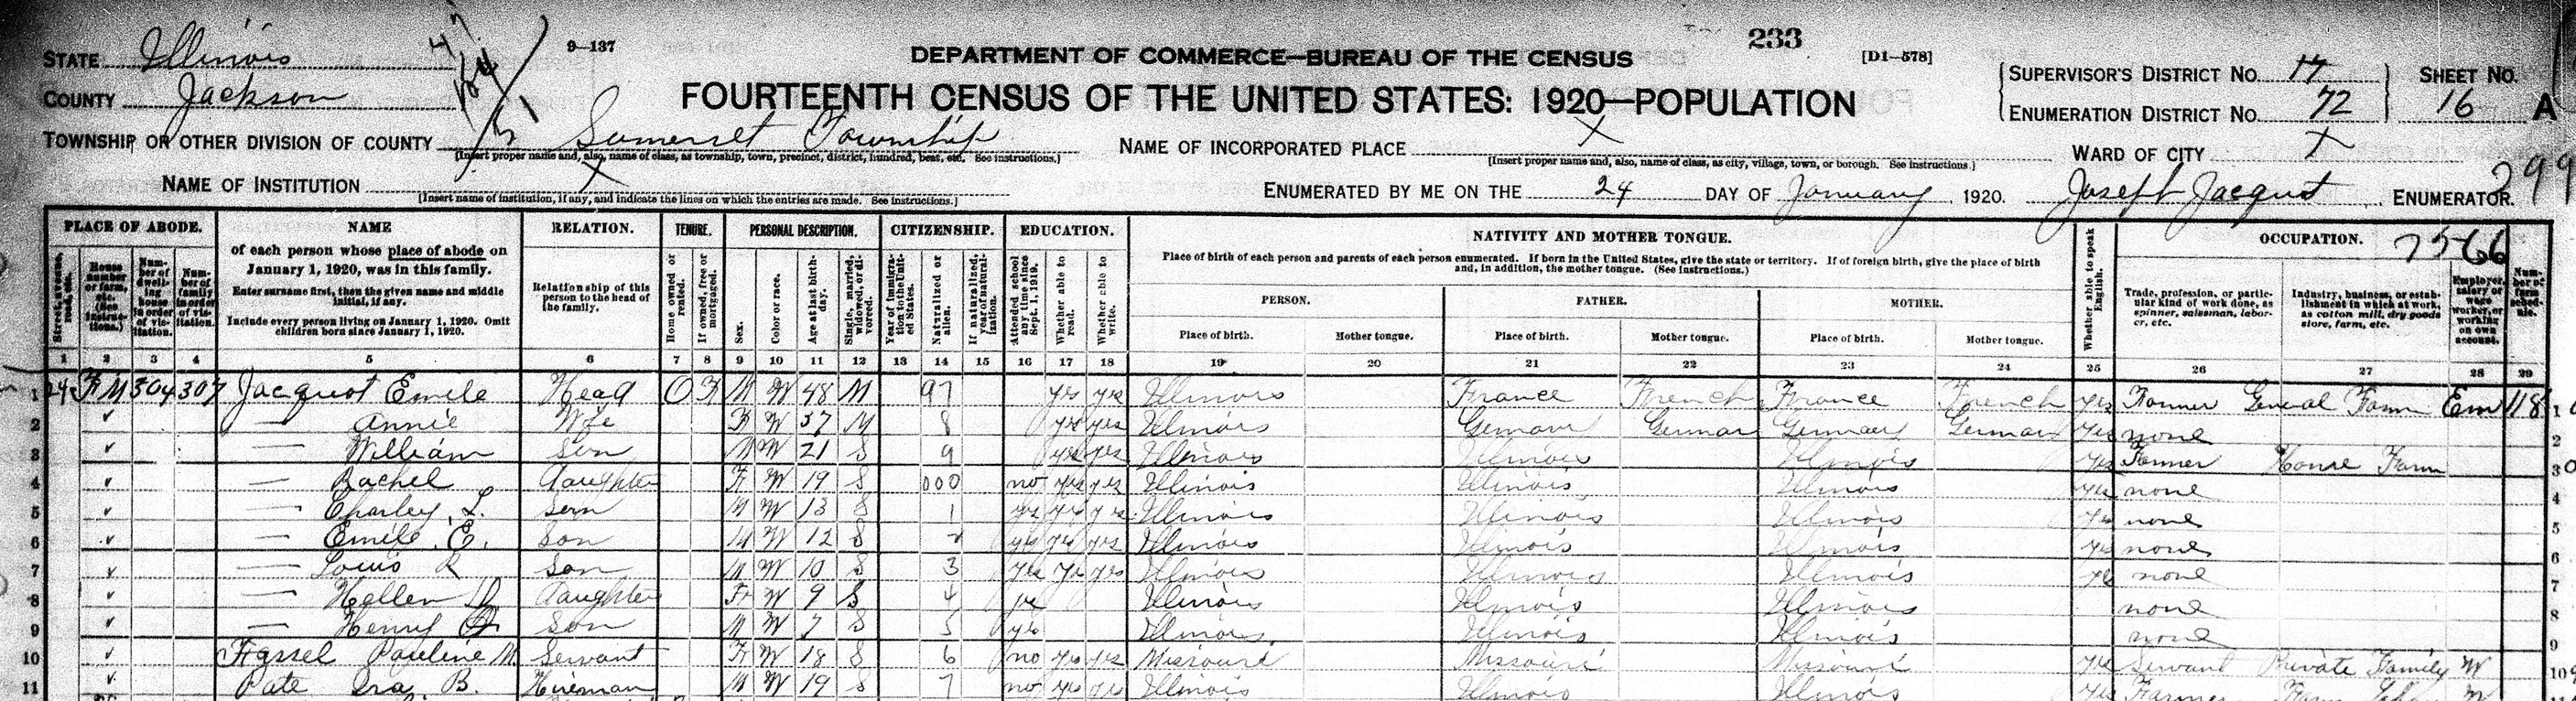 233
STATE Illinois 9—137 DEPARTMENT OF COMMERCE—BUREAU OF THE CENSUS [D1—578]
COUNTY Jackson FOURTEENTH CENSUS OF THE UNITED STATES: 1920—POPULATION
SUPERVISOR'S DISTRICT No. 17 SHEET No.
ENUMERATION DISTRICT No. 72 16 A
TOWNSHIP OR OTHER DIVISION OF COUNTY Somerset Township NAME OF INCORPORATED PLACE X WARD OF CITY X
[Insert proper name and, also, name of class, as township, town, precinct, district, hundred, beat, etc. See instructions.] [Insert proper name and, also, name of class, as city, village, town, or borough. See instructions.]
299
NAME OF INSTITUTION X ENUMERATED BY ME ON THE 24 DAY OF January, 1920. Joseph Jacquot, ENUMERATOR.
[Insert name of institution, if any, and indicate the lines on which the entries are made. See instructions.]
PLACE OF ABODE. NAME RELATION. TENURE. PERSONAL DESCRIPTION. CITIZENSHIP. EDUCATION. NATIVITY AND MOTHER TONGUE. OCCUPATION. 7566
Street, avenue, road, etc.
House number or farm, etc. (See instructions.)
Number of dwelling house in order of visitation.
Number of family in order of visitation.
of each person whose place of abode on January 1, 1920, was in this family.
Enter surname first, then the given name and middle initial, if any.
Include every person living on January 1, 1920. Omit children born since January 1, 1920.
Relationship of this person to the head of the family.
Home owned or rented.
If owned, free or mortgaged.
Sex.
Color or race.
Age at last birthday.
Single, married, widowed, or divorced.
Year of immigration to the United States.
Naturalized or alien.
If naturalized, year of naturalization.
Attended school any time since Sept. 1, 1919.
Whether able to read.
Whether able to write.
Place of birth of each person and parents of each person enumerated. If born in the United States, give the state or territory. If of foreign birth, give the place of birth and, in addition, the mother tongue. (See instructions.)
PERSON. FATHER. MOTHER.
Place of birth. Mother tongue. Place of birth. Mother tongue. Place of birth. Mother tongue.
Whether able to speak English.
Trade, profession, or particular kind of work done, as spinner, salesman, laborer, etc.
Industry, business, or establishment in which at work, as cotton mill, dry goods store, farm, etc.
Employer, salary or wage worker, or working on own account.
Number of farm schedule.
1 2 3 4 5 6 7 8 9 10 11 12 13 14 15 16 17 18 19 20 21 22 23 24 25 26 27 28 29
1 FM 304 307 Jacquot Emile Head O F M W 48 M 97 yes yes Illinois France French France French yes Farmer General Farm Em 118 1
2 — Annie Wife F W 37 M 8 yes yes Illinois Germany German Germany German yes none 2
3 — William Son M W 21 S 9 yes yes Illinois Illinois Illinois yes Farmer Home Farm 3
4 — Rachel daughter F W 19 S 000 no yes yes Illinois Illinois Illinois yes none 4
5 — Charley L. Son M W 13 S 1 yes yes yes Illinois Illinois Illinois yes none 5
6 — Emile E. Son M W 12 S 2 yes yes yes Illinois Illinois Illinois yes none 6
7 — Louis R Son M W 10 S 3 yes yes yes Illinois Illinois Illinois yes none 7
8 — Hellen D daughter F W 9 S 4 yes Illinois Illinois Illinois none 8
9 — Henry Son M W 7 S 5 yes Illinois Illinois Illinois none 9
10 Fassel Pauline M. Servant F W 18 S 6 no yes yes Missouri Missouri Missouri yes Servant Private Family W 10
11 Pate Ira B. Hireman M W 19 S 7 no yes yes Illinois Illinois Illinois yes Farmer Farm W